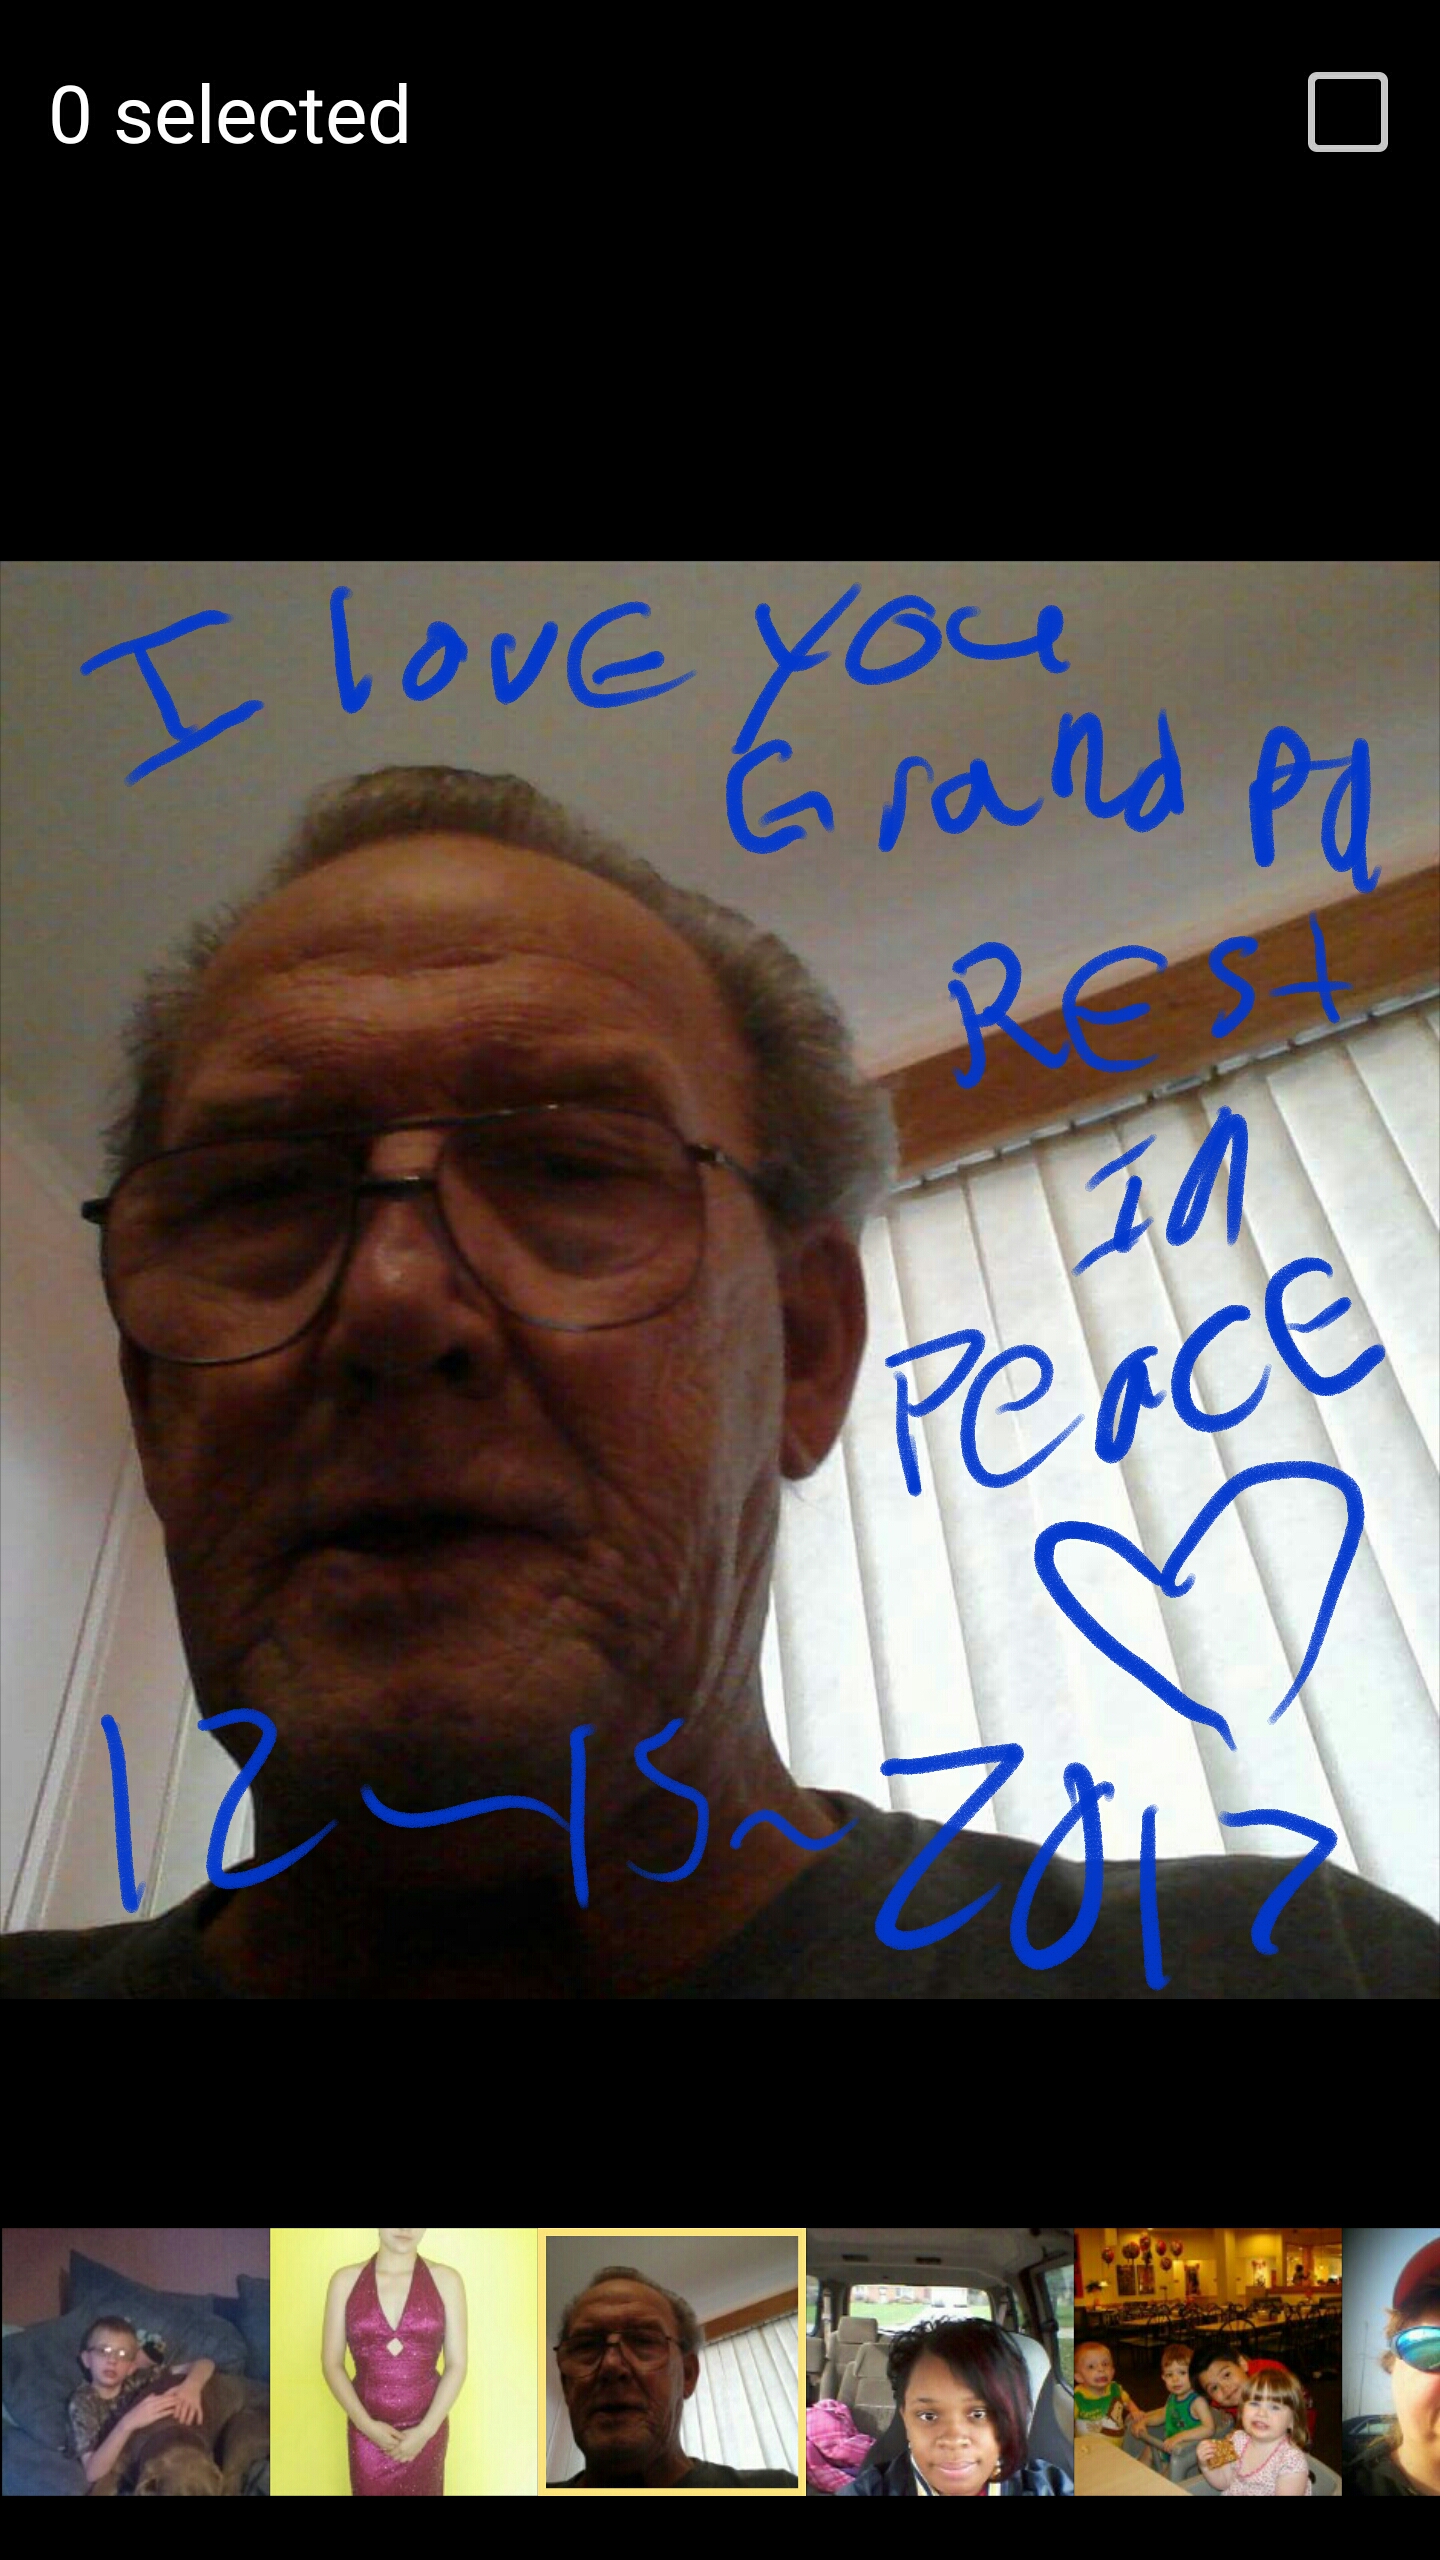 0 selected
I lovE you
Grandpa
REst
In
PEaCE
12~15~2017